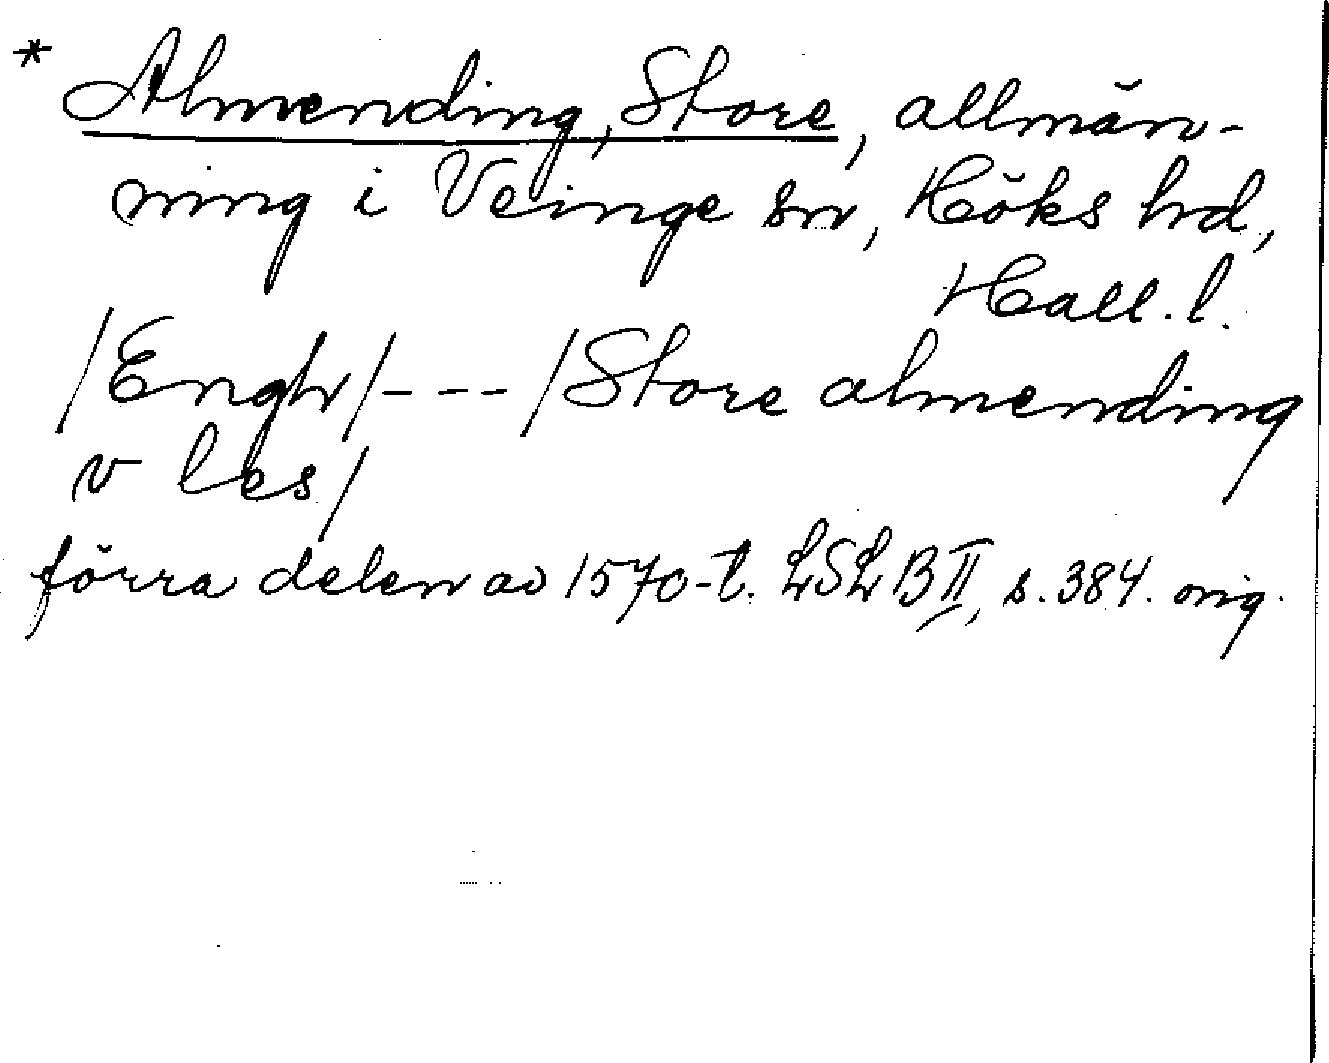 * Almending, Store, allmän-
ning i Veinge sn, Höks hd,
Hall. l.
/Engh/ - - - /Store almending
v les/
förra delen av 1570-t. LSLB II, s. 384. orig.